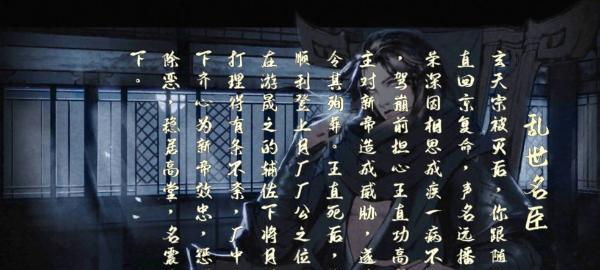 乱世名臣
玄天宗被灭后，你跟随
直回京复命，声名远播
荣深因相思成疾一病不
，驾崩前担心王直功高
主对新帝造成威胁，遂
令其殉葬。王直死后，
顺利登上月厂厂公之位
在游晟之的辅佐下将月
打理得有条不紊，厂中
下齐心为新帝效忠，惩
除恶，稳居高堂，名震
下。